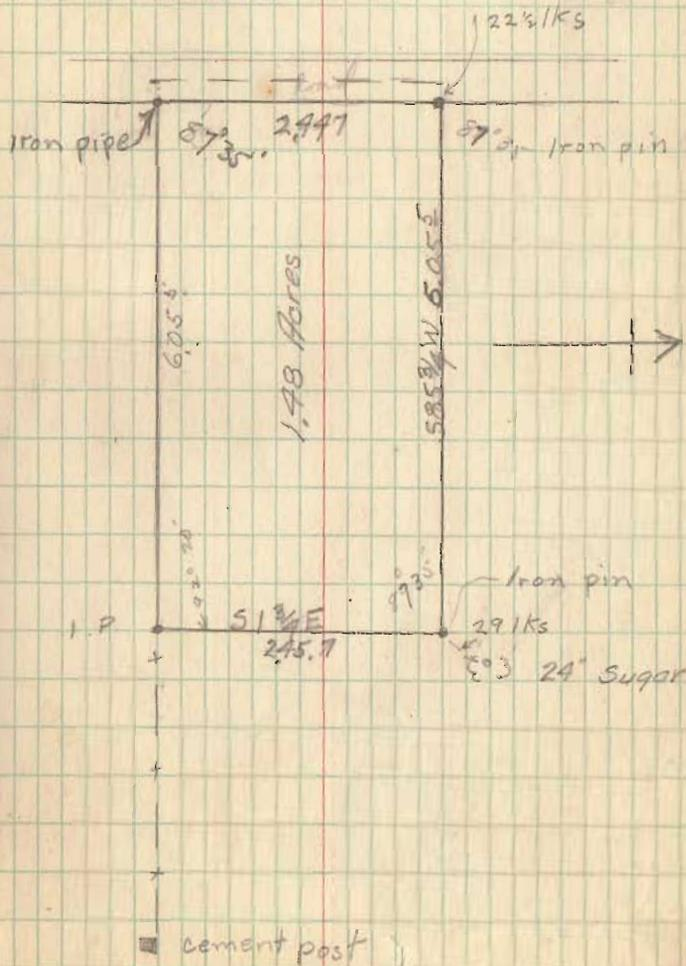 22½ lks
Iron pipe
87° 35'
2.447
87°
Iron pin
6.05⁵
1.48 Acres
S85¾W 6.05⁵
92° 25'
87 35
Iron pin
I.P.
S1¾E
245.7
29 lks
24" Sugar
cement post